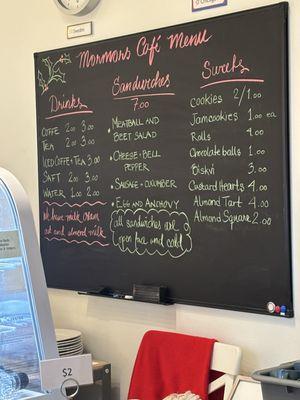 Sweden
Chicago
Mormors Café Menu
Drinks
Coffe 2.00 3.00
Tea 2.00 3.00
Iced Coffe + Tea 3.00
Saft 2.00 3.00
Water 1.00 2.00
We have milk, cream,
oat and almond milk
Sandwiches
7.00
Meatball and
Beet Salad
Cheese + Bell
Pepper
Sausage + Cucumber
Egg and Anchovy
all sandwiches are
open face and cold
Sweets
Cookies 2/1.00
Jamcookies 1.00 ea
Rolls 4.00
Chocolate balls 1.00
Biskvi 3.00
Custard Hearts 4.00
Almond Tart 4.00
Almond Square 2.00
$2